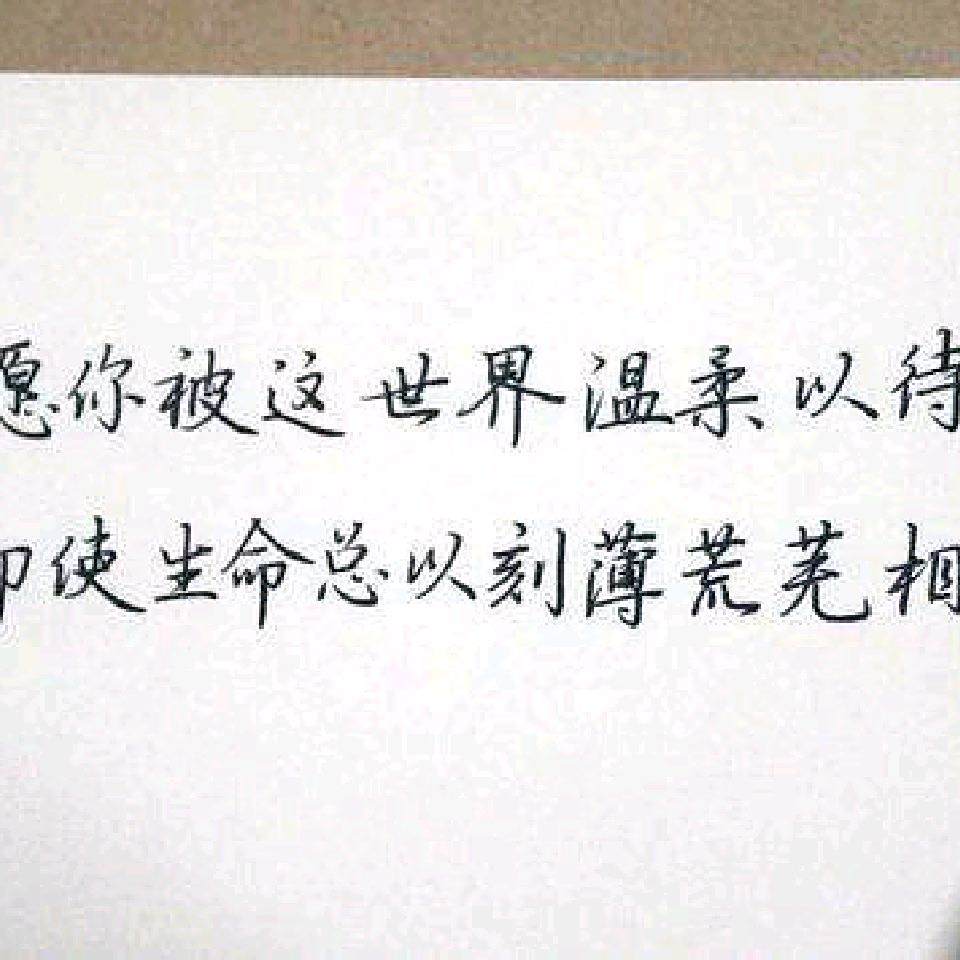 愿你被这世界温柔以待
即使生命总以刻薄荒芜相